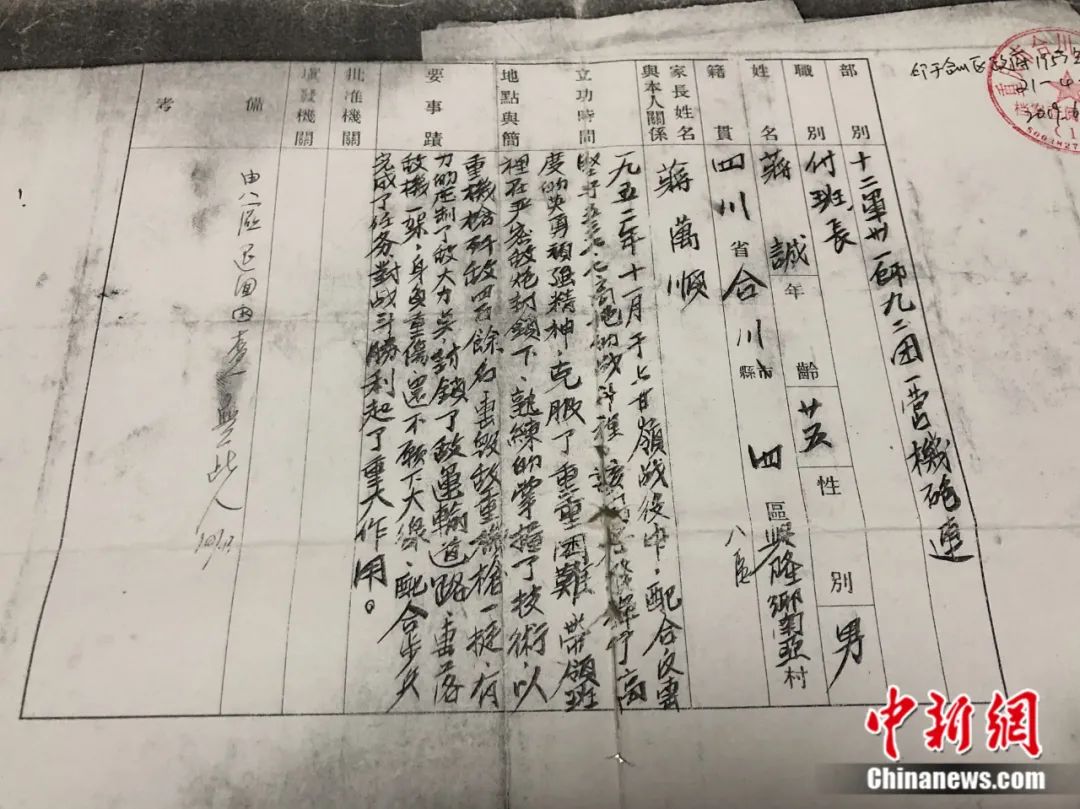 部別 十二軍卅一師九二团一营機砲連
職別 付班長
姓名 蔣誠 年齡 廿五 性別 男
籍貫 四川省合川縣市 四區興隆鄉南亞村
八區
家長姓名
與本人關係
蔣萬順
立功時間
地點與簡
要事蹟
一九五二年十一月于上甘嶺战役中，配合反击
坚守五三七.七高地的战斗裡，该同志發揮了高
度的英勇頑强精神，克服了重重困難，带領班
裡在严密敌炮封鎖下，熟練的掌握了技術，以
重機槍歼敌四百餘名，击毁敌重機槍一挺，有
力的压制了敌火力点，封鎖了敌運輸道路，击落
敌機一架，身負重傷還不願下火線，配合步兵
完成了任务，對战斗勝利起了重大作用。
批准機關
填發機關
備考
由八區退回因查無此人
中新網
Chinanews.com